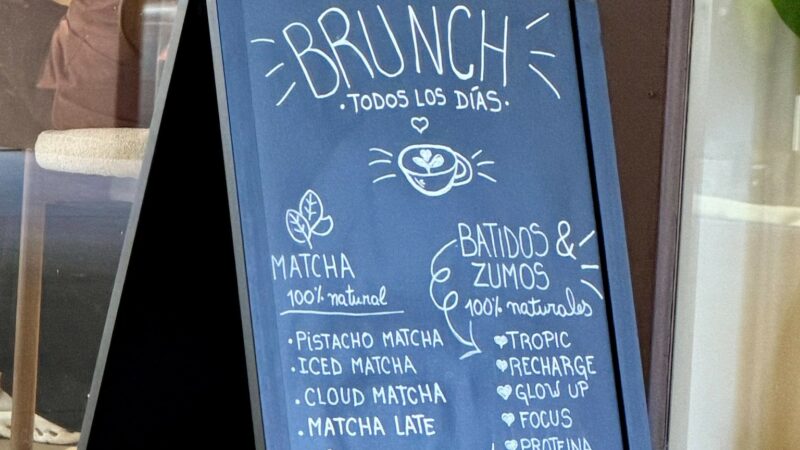 BRUNCH
·TODOS LOS DÍAS·
MATCHA
100% natural
·PISTACHO MATCHA
·ICED MATCHA
·CLOUD MATCHA
·MATCHA LATE
BATIDOS &
ZUMOS
100% naturales
TROPIC
RECHARGE
GLOW UP
FOCUS
PROTEINA